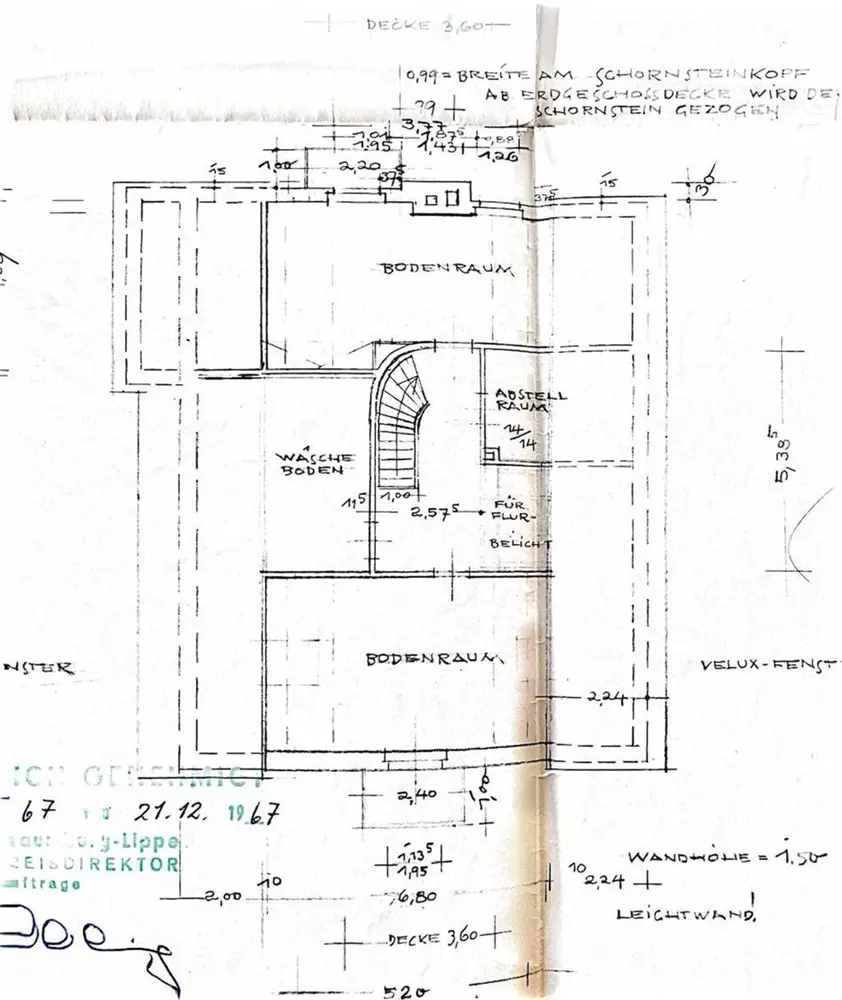 DECKE 3,60
0,99 = BREITE AM SCHORNSTEINKOPF
AB ERDGESCHOSSDECKE WIRD DE
SCHORNSTEIN GEZOGEN
99
3,77
1,01 1,87⁵ ,88⁵
1.95 1,43 1,26
1,00 2,20
37⁵
15
37⁵
15
30
BODENRAUM
ABSTELL
RAUM
14/14
WÄSCHE
BODEN
5,38⁵
11⁵
1,00
2,57⁵
FÜR
FLUR-
BELICHT
BODENRAUM
NSTER
VELUX-FENST
2,24
ICH GENEHMIGT
67 21.12. 1967
g-Lippe
REISDIREKTOR
ftrage
2,40
1,13⁵
1,95
WANDHÖHE = 1.50
2,00
10
6,80
10
2,24
LEICHTWAND!
DECKE 3,60
520